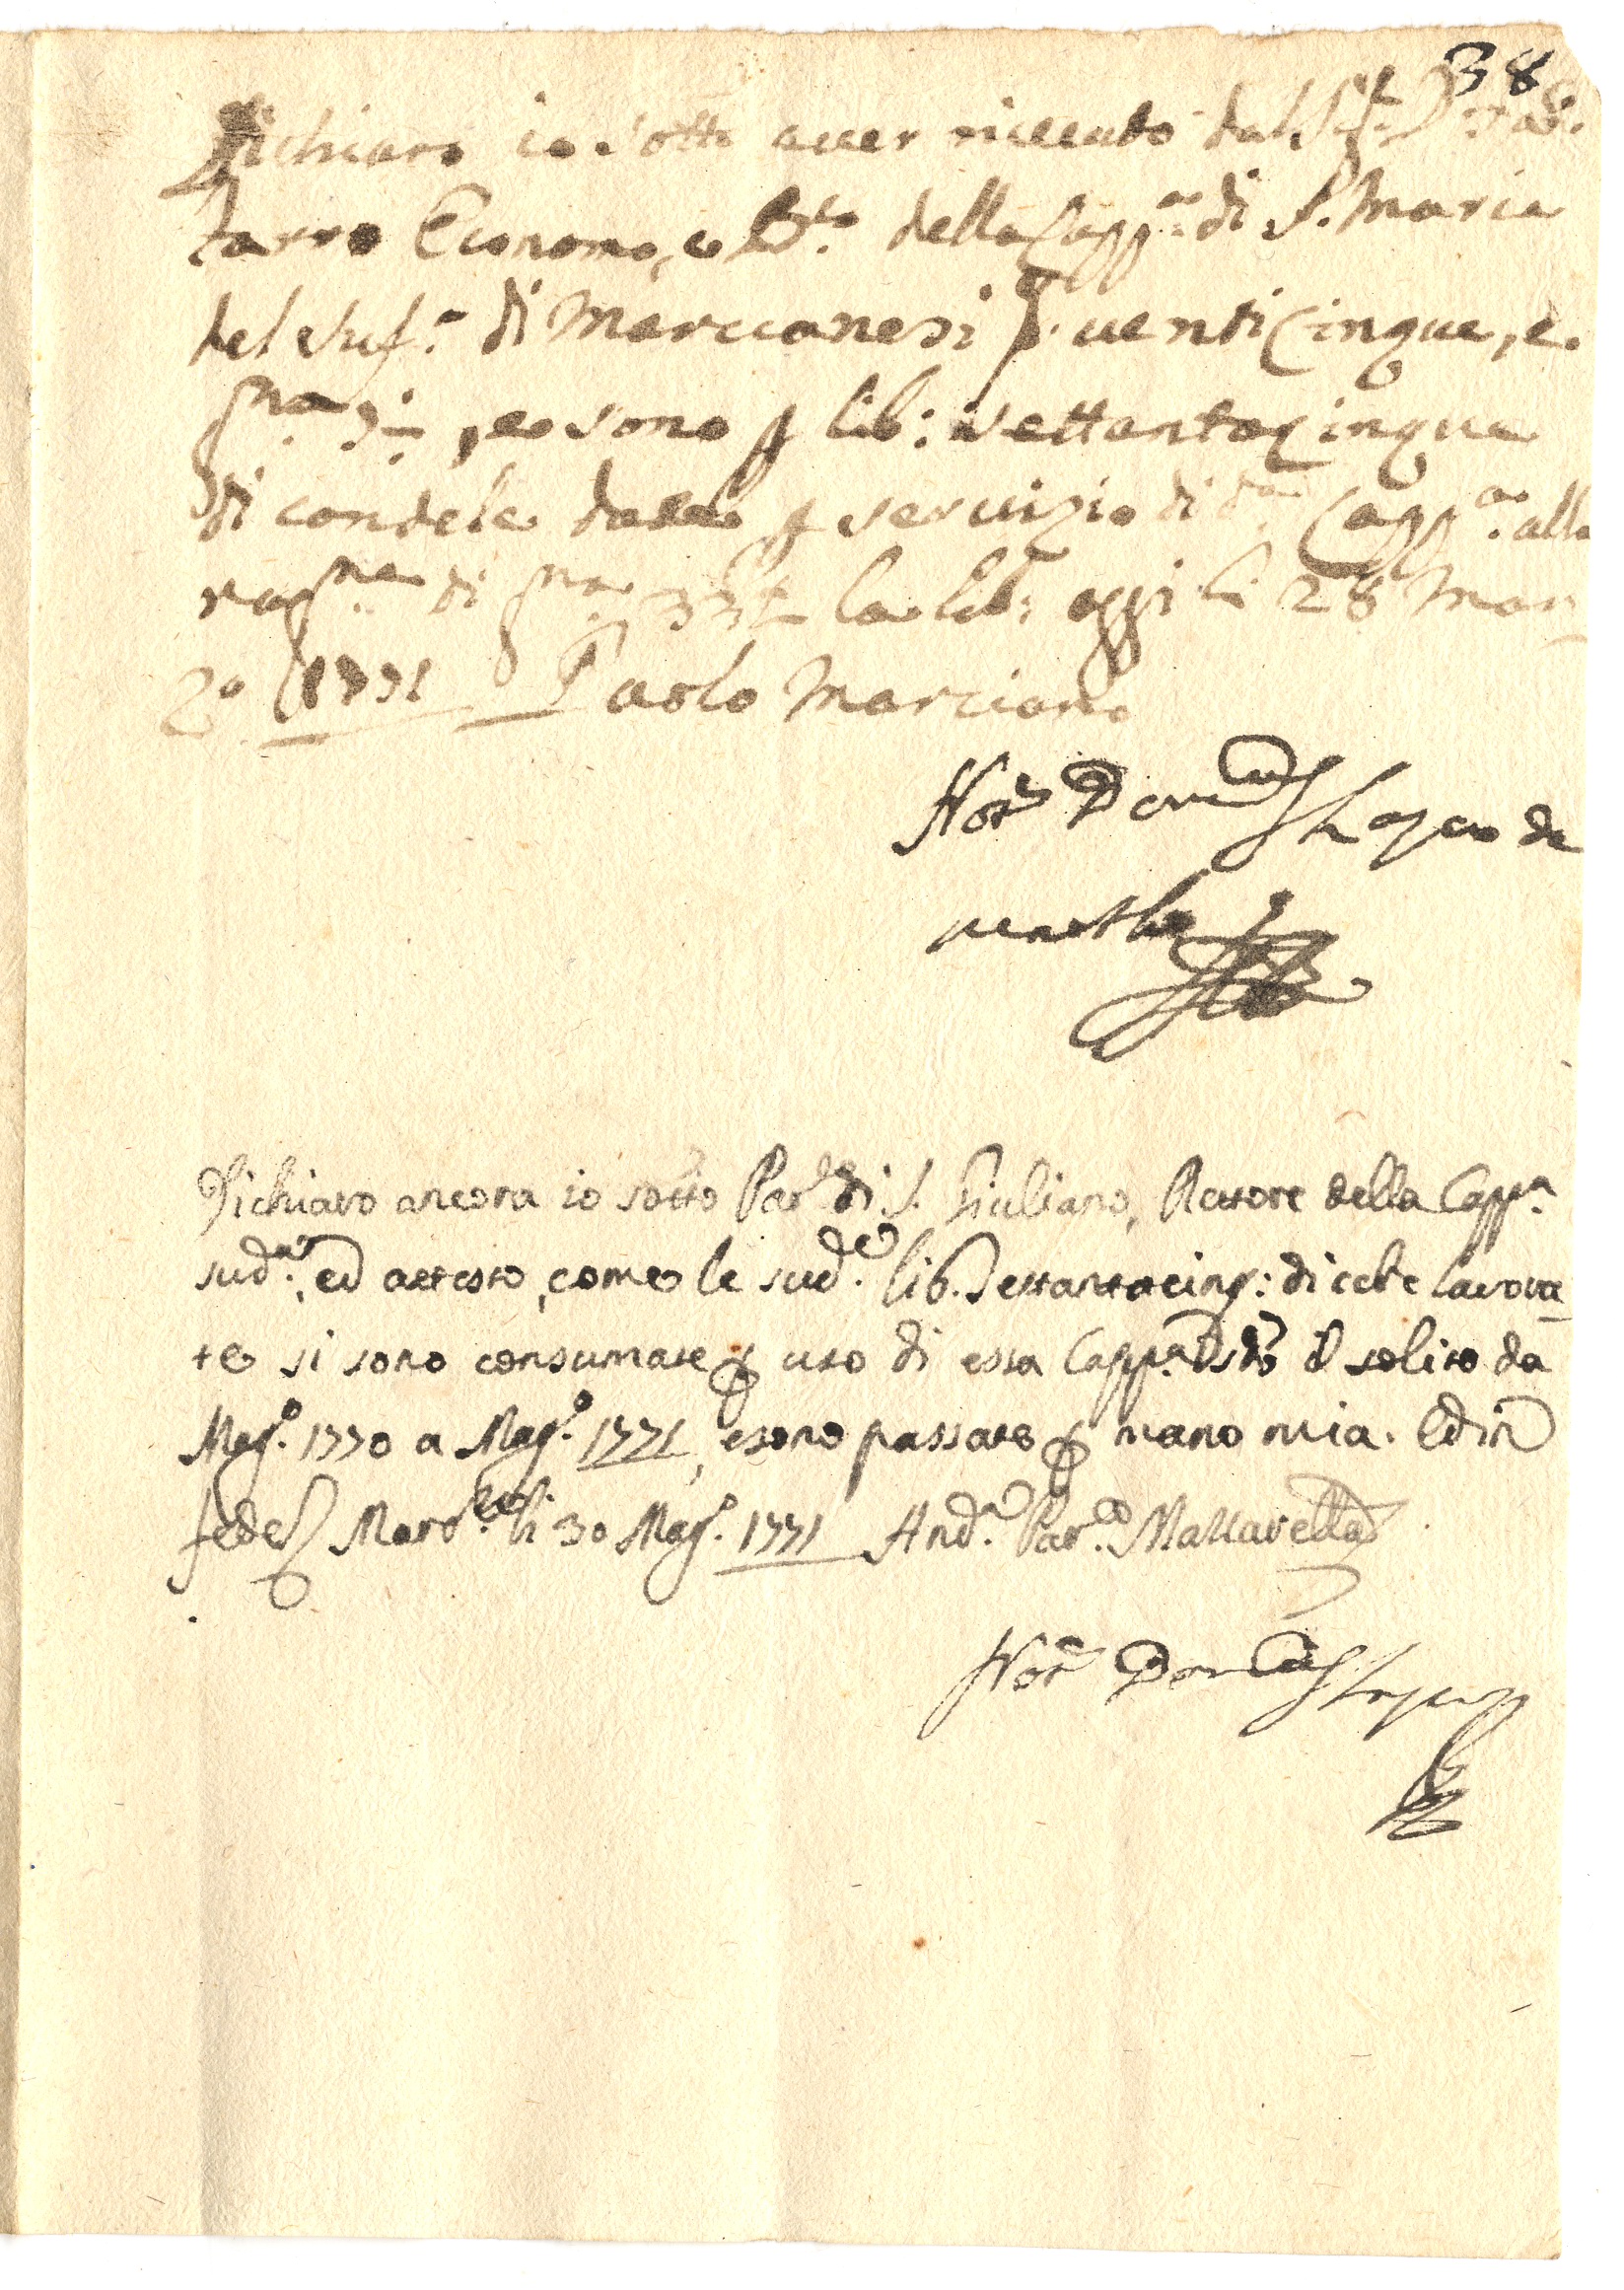 38
Dichiaro io sotto aver riceuto dal Sig.r D.
Zarro Economo, e della Capp.a di S. Maria
del Suf.o di Marcianesi d. venticinque, e
gra. , e sono p lib: settantacinque
di candele date p servizio di d.a Capp.a alla
rag.ne di gra 33 la lib: oggi li 28 Mar
zo 1771 Paolo Marciano
Not.r Dom.
Dichiaro ancora io sotto Par.o di S. Giuliano, Retore della Capp.a
sud.a, ed attesto, come le sud.e lib. Settantacinq: di cere lavora
te si sono consumate p uso di essa Capp.a il solito da
Mag.o 1770 a Mag.o 1771, e sono passate p mano mia. Ed in
fede Marc.e li 30 Mag.o 1771 And.a Par.o
Not.r Dom.